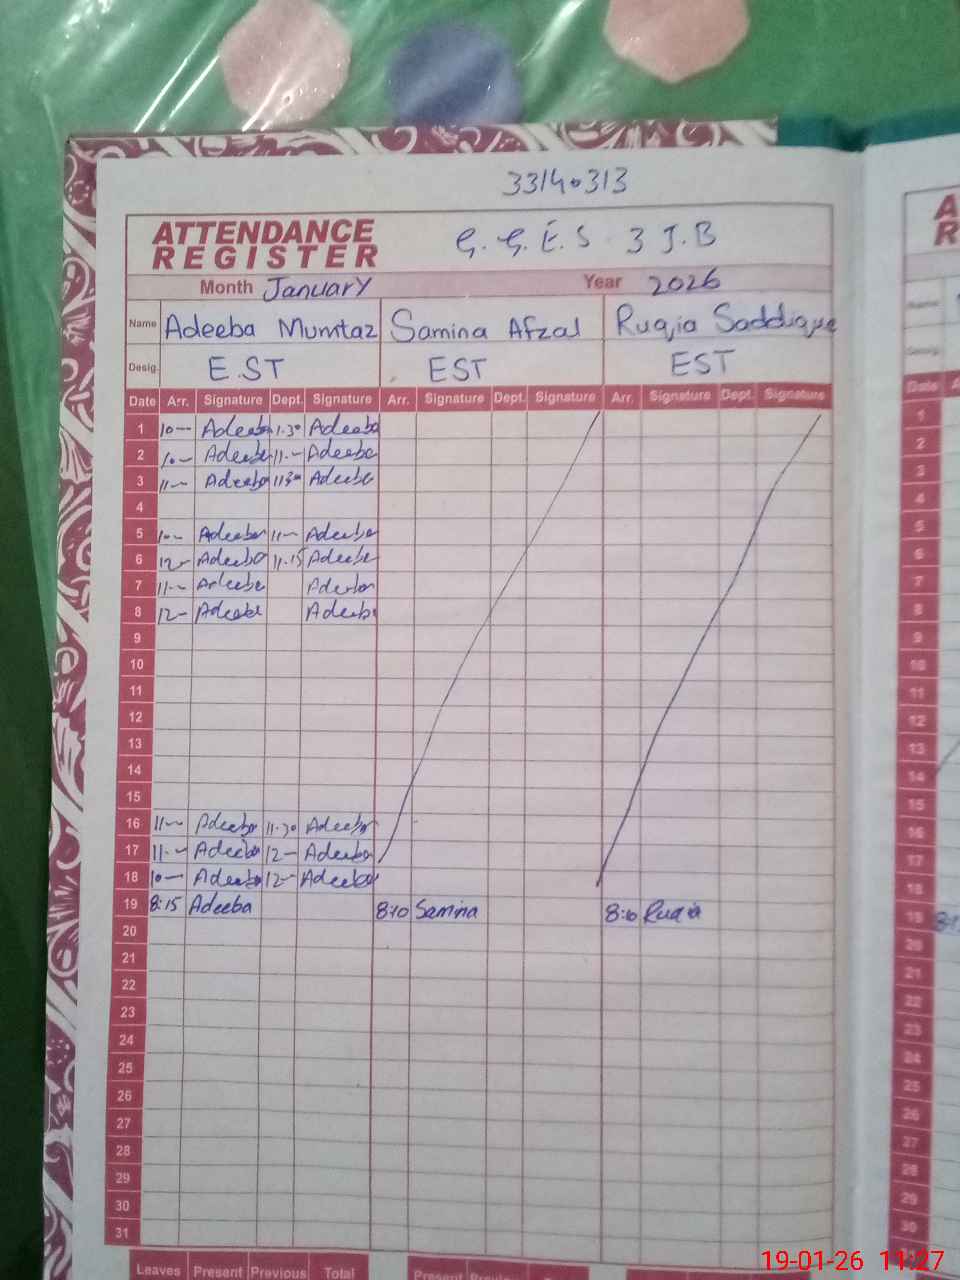 33140313
ATTENDANCE REGISTER G.G.E.S 3 J.B
Month January Year 2026
Name Adeeba Mumtaz Samina Afzal Ruqia Saddique
Desig. E.ST EST EST
Date Arr. Signature Dept. Signature Arr. Signature Dept. Signature Arr. Signature Dept. Signature
1 10— Adeeba 1.30 Adeeba
2 10— Adeeba 11— Adeeba
3 11— Adeeba 1130 Adeeba
4
5 10— Adeeba 11— Adeeba
6 12— Adeeba 11.15 Adeeba
7 11— Adeeba Adeeba
8 12— Adeeba Adeeba
9
10
11
12
13
14
15
16 11— Adeeba 11.30 Adeeba
17 11— Adeeba 12— Adeeba
18 10— Adeeba 12— Adeeba
19 8:15 Adeeba 8:10 Samina 8:10 Ruqia
20
21
22
23
24
25
26
27
28
29
30
31
Leaves Present Previous Total Present
19-01-26 11:27